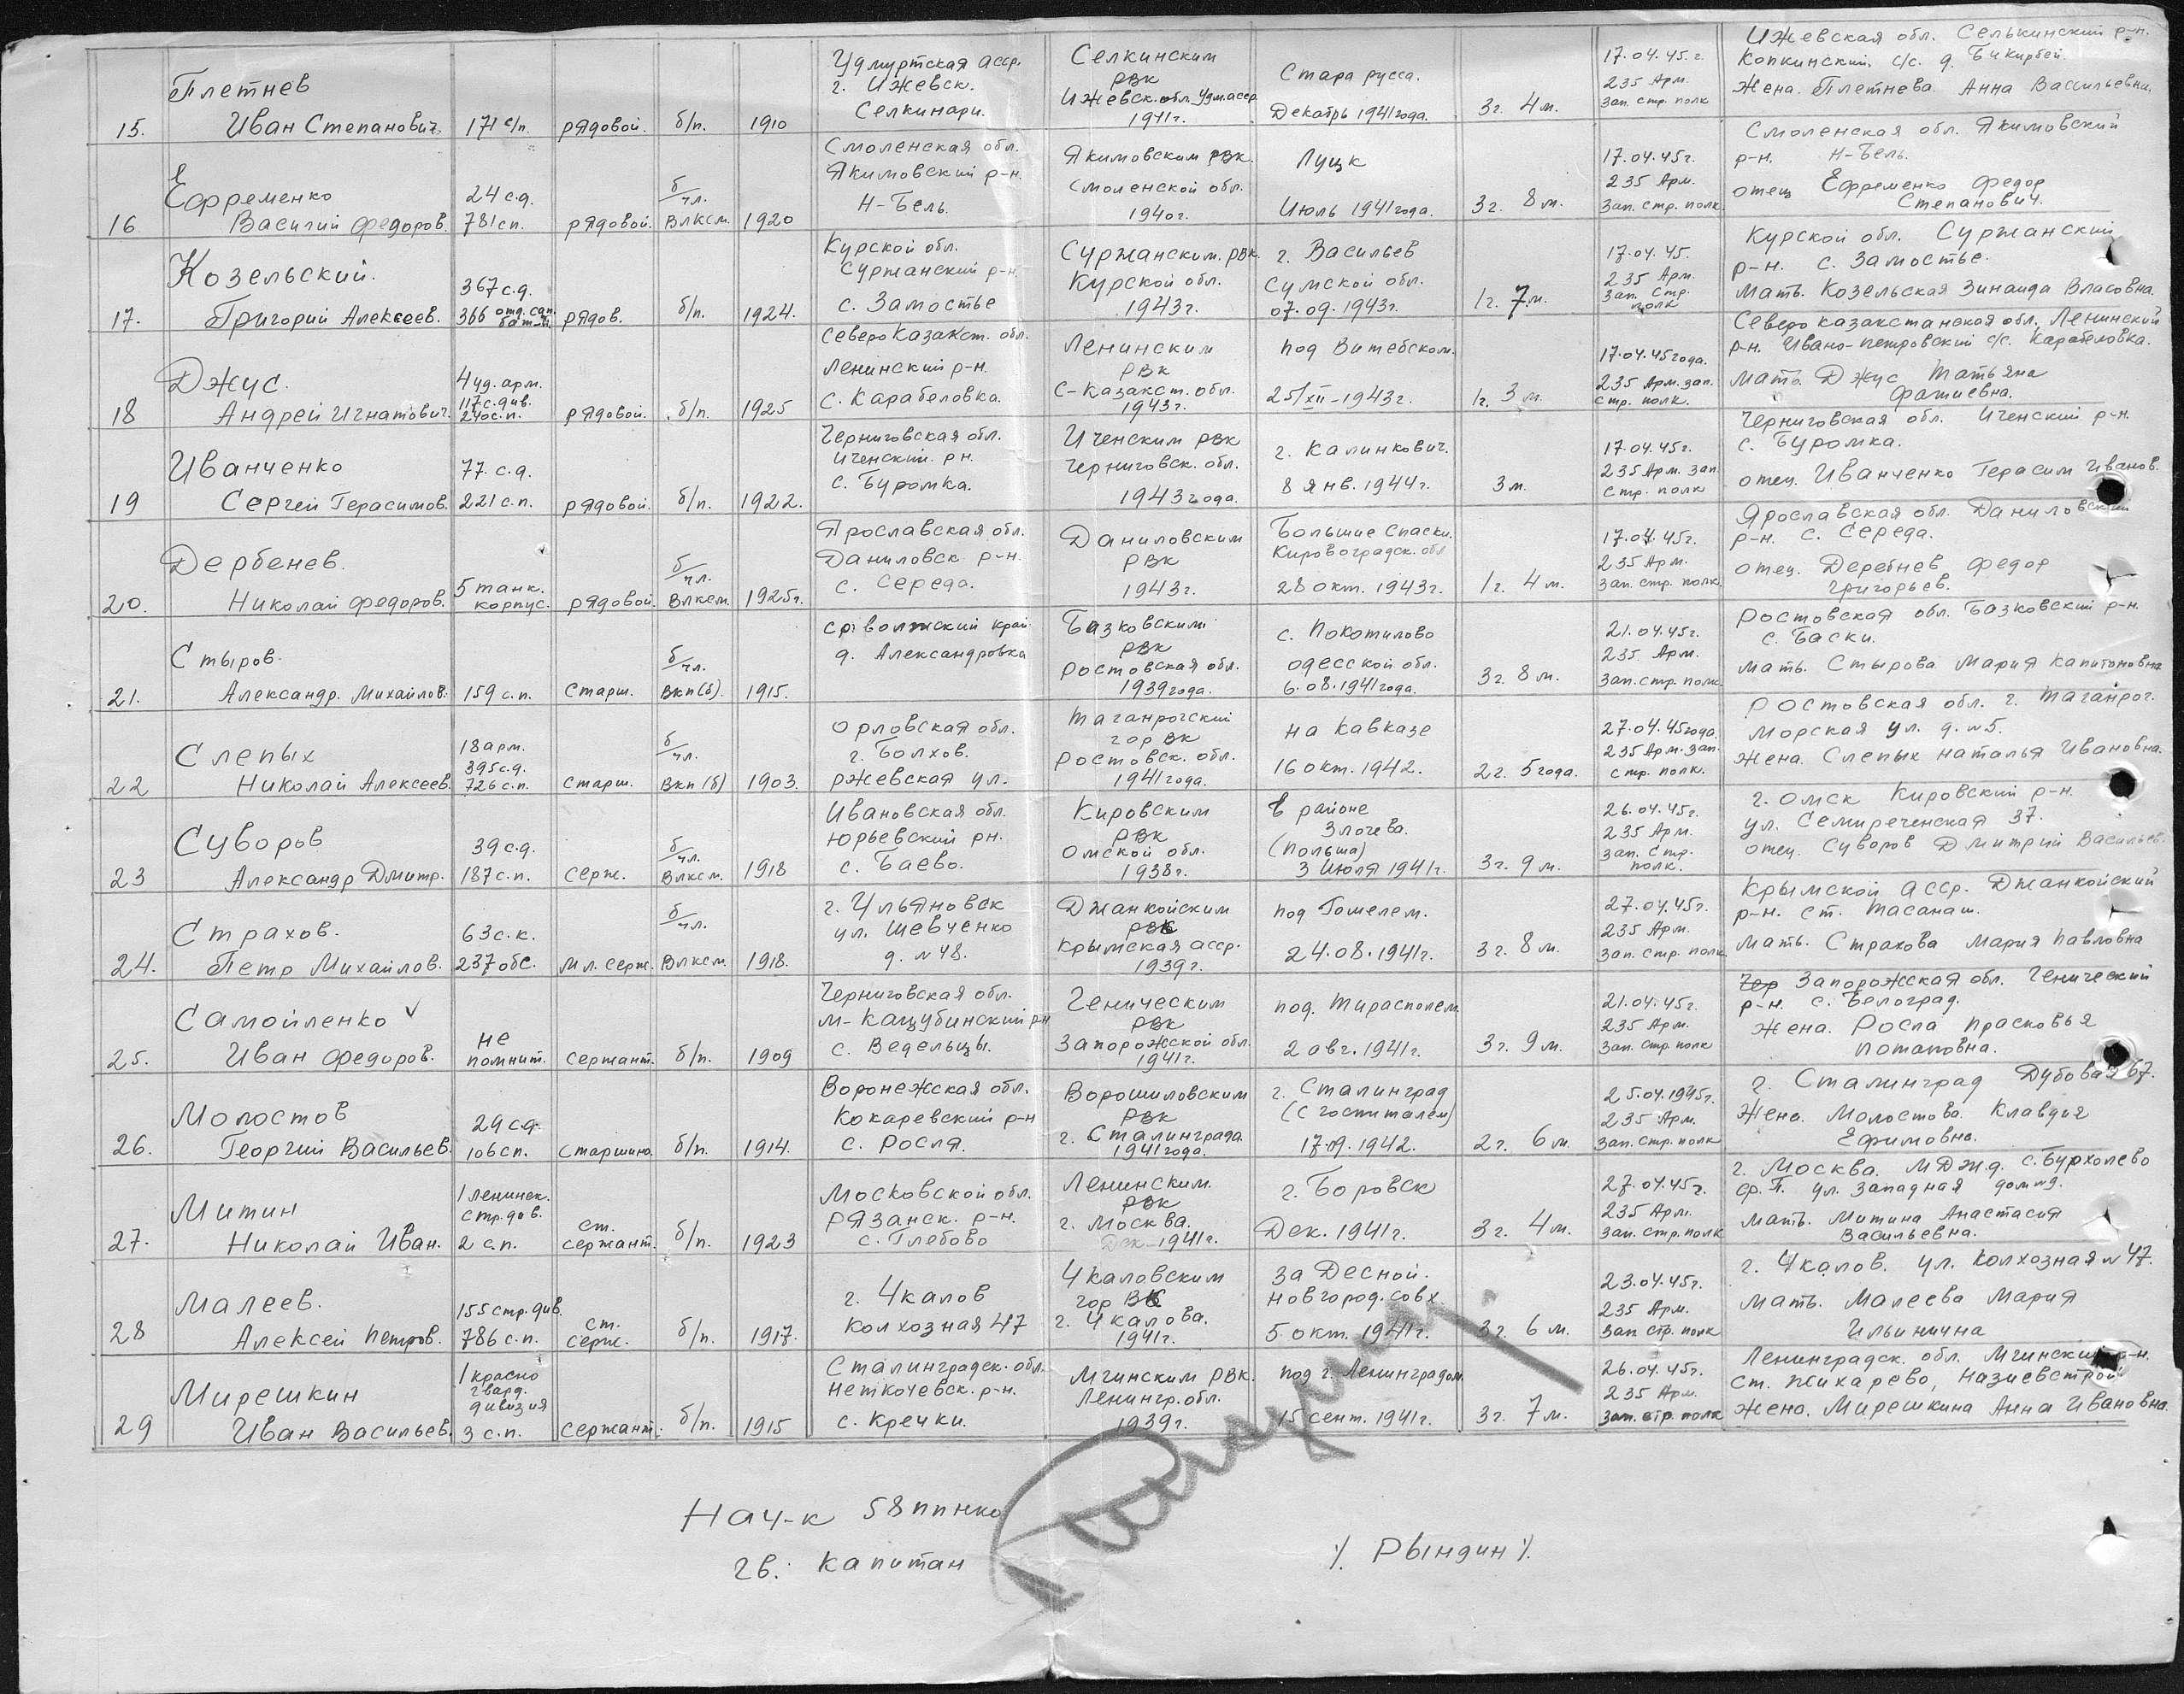 15.
Плетнев
Иван Степанович.
171 с/п.
рядовой.
б/п.
1910
Удмуртская асср.
г. Ижевск.
Селкинари.
Селкинским
РВК
Ижевск. обл. Удм. асср.
1941г.
Стара русса.
Декабрь 1941 года.
3г. 4 м.
17.04.45г.
235 Арм.
зап. стр. полк
Ижевская обл. Селькинский р-н.
Копкинский с/с. д. Бикирбей
Жена. Плетнева Анна Вассильевна.
16
Ефременко
Василий Федоров.
24 с.д.
781 сп.
рядовой.
б/чл.
Влксм.
1920
Смоленская обл.
Якимовский р-н.
Н-Бель.
Якимовским РВК.
Смоленской обл.
1940г.
Луцк
Июль 1941 года.
3г. 8 м.
17.04.45г.
235 Арм.
Зап. стр. полк
Смоленская обл. Якимовский
р-н. Н-Бель.
отец Ефременко Федор
Степанович.
17.
Козельский.
Григорий Алексеев.
367 с.д.
366 отд. сап.
бат-н
рядов.
б/п.
1924.
Курской обл.
Суржанский р-н.
с. Замостье
Суржанским. РВК.
Курской обл.
1943г.
г. Васильев
Сумской обл.
07.09.1943г.
1г. 7 м.
17.04.45.
235 Арм.
Зап. стр.
полк
Курской обл. Суржанский
р-н. с. Замостье.
Мать. Козельская Зинаида Власовна.
18
Джус.
Андрей Игнатович.
4 уд. арм.
117 с.див.
240 с.п.
рядовой
б/п.
1925
Северо Казакст. обл.
Ленинский р-н.
с. Карабеловка.
Ленинским
РВК
С-Казакст. обл.
1943г.
под Витебском.
25/XII-1943г.
1г. 3 м.
17.04.45 года.
235 Арм. зап.
стр. полк.
Северо казакстанская обл. Ленинский
р-н. Ивано-петровский с/с. Карабеловка.
Мать Джус Татьяна
Фатиевна.
19
Иванченко
Сергей Герасимов.
77. с.д.
221 с.п.
рядовой.
б/п.
1922.
Черниговская обл.
Иченский. рн.
с. Буромка.
Иченским РВК
Черниговск. обл.
1943 года.
г. Калинкович.
8 янв. 1944г.
3 м.
17.04.45г.
235 Арм. зап.
стр. полк
Черниговская обл. Иченский р-н.
с. Буромка.
отец. Иванченко Герасим Иванов.
20.
Дербенев.
Николай Федоров.
5 танк.
корпус.
рядовой.
б/чл.
Влксм.
1925г.
Ярославская обл.
Даниловск р-н.
с. Середа.
Даниловским
РВК
1943г.
Большие Спаски.
Кировоградск. обл
28 окт. 1943г.
1г. 4 м.
17.04.45г.
235 Арм.
Зап. стр. полк.
Ярославская обл. Даниловский
р-н. с. Середа.
отец. Деребнев Федор
Григорьев.
21.
Стыров.
Александр. Михайлов.
159 с.п.
Старш.
б/чл.
Вкп(б).
1915.
ср. волжский край
д. Александровка
Базковским
РВК
Ростовская обл.
1939 года.
с. Покотилово
одесской обл.
6.08.1941 года.
3г. 8 м.
21.04.45г.
235 Арм.
Зап. стр. полк
Ростовская обл. Базковский р-н.
с. Баски.
мать. Стырова Мария Капитоновна
22
Слепых
Николай Алексеев.
18 арм.
395 с.д.
726 с.п.
Старш.
б/чл.
Вкп(б)
1903.
Орловская обл.
г. Болхов.
ржевская ул.
Таганрогский
гор ВК
Ростовск. обл.
1941 года.
на Кавказе
16 окт. 1942.
2г. 5 года.
27.04.45 года.
235 Арм. зап.
стр. полк.
Ростовская обл. г. Таганрог.
Морская ул. д. №5.
Жена. Слепых Наталья Ивановна.
23
Суворов
Александр Дмитр.
39 с.д.
187 с.п.
Серж.
б/чл.
Влксм.
1918
Ивановская обл.
Юрьевский рн.
с. Баево.
Кировским
РВК
Омской обл.
1938г.
в районе
Злочева.
(польша)
3 Июля 1941г.
3г. 9 м.
26.04.45г.
235 Арм.
зап. стр.
полк.
г. Омск Кировский р-н
ул. Семиреченская 37.
отец. Суворов Дмитрий Васильев.
24.
Страхов.
Петр Михайлов.
63 с.к.
237 обс.
Мл. серж.
б/чл.
Влксм.
1918.
г. Ульяновск
ул. Шевченко
д. №48.
Джанкойским
РВК
Крымская асср.
1939г.
под Гомелем.
24.08.1941г.
3г. 8 м.
27.04.45г.
235 Арм.
Зап. стр. полк
Крымской асср. Джанкойский
р-н. ст. Тасанаш.
Мать. Страхова Мария Павловна
25.
Самойленко
Иван Федоров.
не
помнит.
Сержант.
б/п.
1909
Черниговская обл.
М-Кацубинский рн
с. Ведельцы.
Геническим
РВК
Запорожской обл.
1941г.
под. Тирасполем.
2 авг. 1941г.
3г. 9 м.
21.04.45г.
235 Арм.
Зап. стр. полк
Чер Запорожская обл. Генический
р-н. с. Белоград.
Жена. Росла Прасковья
Потаповна.
26.
Молостов
Георгий Васильев.
29 с.д.
106 сп.
Старшина.
б/п.
1914.
Воронежская обл.
Кокаревский р-н
с. Росля.
Ворошиловским
РВК
г. Сталинграда.
1941 года.
г. Сталинград
(с госпиталем)
17.09.1942.
2г. 6 м.
25.04.1945г.
235 Арм.
Зап. стр. полк
г. Сталинград Дубовая 67.
Жена. Молостова Клавдия
Ефимовна.
27.
Митин
Николай Иван.
1 Ленинск.
стр. див.
2 с.п.
ст.
сержант.
б/п.
1923
Московской обл.
Рязанск. р-н.
с. Глебово
Ленинским.
РВК
г. Москва.
Дек-1941г.
г. Боровск
Дек. 1941г.
3г. 4 м.
27.04.45г.
235 Арм.
Зап. стр. полк
г. Москва. МДжд. с. Бурхолево
ф. П. ул. Западная дом №9.
мать. Митина Анастасия
Васильевна.
28
Малеев.
Алексей Петров.
155 стр. див.
786 с.п.
ст.
серж.
б/п.
1917.
г. Чкалов
Колхозная 47
Чкаловским
гор ВК
г. Чкалова.
1941г.
за Десной.
Новгород. совх.
5 окт. 1941г.
3г 6 м.
23.04.45г.
235 Арм.
Зап стр. полк
г. Чкалов. ул. Колхозная №47.
мать. Малеева Мария
Ильинична
29
Мирешкин
Иван Васильев.
1 красно
гвард.
дивизия
3 с.п.
Сержант.
б/п.
1915
Сталинградск. обл.
Неткочевск. р-н.
с. Кречки.
Мгинским РВК.
Ленингр. обл.
1939г.
под г. Ленинградом.
15 сент. 1941г.
3г. 7 м.
26.04.45г.
235 Арм.
Зап. стр. полк
Ленинградск. обл. Мгинский р-н.
ст. Жихарево, Назиевстрой
Жена. Мирешкина Анна Ивановна.
Нач-к 58 ппнко
гв. капитан
/. Рындин /.